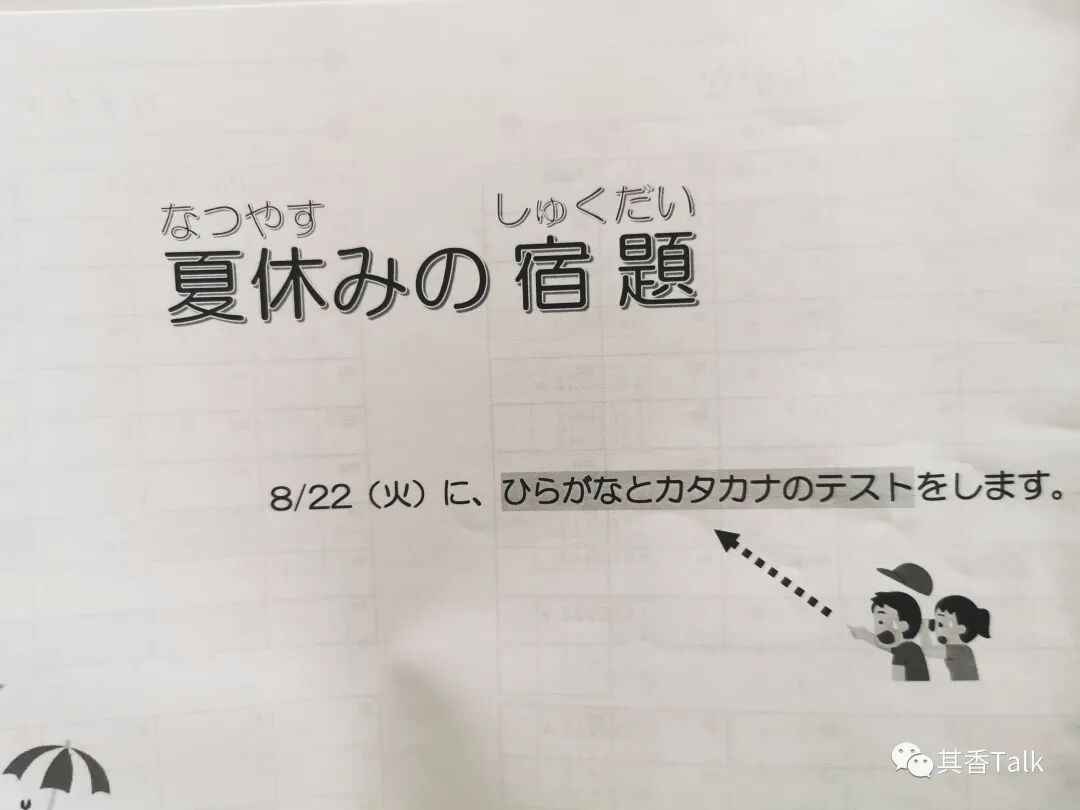 なつやす しゅくだい
夏休みの宿題
8/22（火）に、ひらがなとカタカナのテストをします。
其香Talk